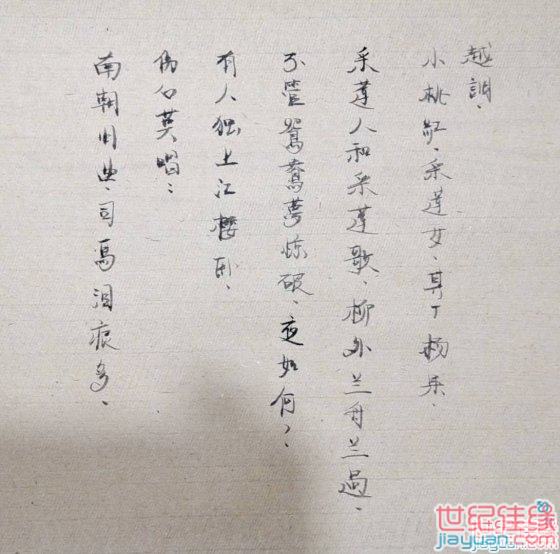 越調、
小桃紅、采蓮女、其丁杨
采蓮人和采蓮歌、柳外兰舟兰過、
不管鴛鴦夢惊破、夜如何?、
有人独上江樓卧、
伤心莫唱、
南朝旧曲、司馬泪痕多、
世纪佳缘
jiayuan.com